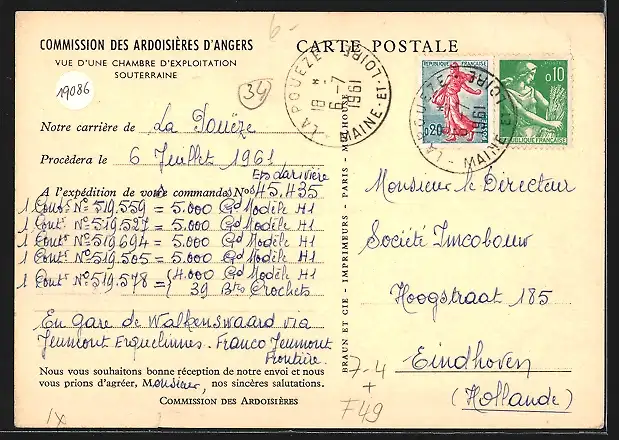 COMMISSION DES ARDOISIÈRES D'ANGERS
VUE D'UNE CHAMBRE D'EXPLOITATION
SOUTERRAINE
19086
34
6-
CARTE POSTALE
LA POUEZE
18 H
6-7
1961
MAINE-ET-LOIRE
REPUBLIQUE FRANÇAISE
0,20
POSTES
0,10
LA POUEZE
1961
MAINE-ET-LOIRE
Notre carrière de La Pouëze
Procèdera le 6 Juillet 1961
Ets Larivière
A l'expédition de votre commandes Nos 45.435
1 Contr No 519.559 = 5.000 Gd Modèle H1
1 Contr No 519.527 = 5.000 Gd Modèle H1
1 Contr No 519.694 = 5.000 Gd Modèle H1
1 Contr No 519.505 = 5.000 Gd Modèle H1
1 Contr No 519.578 = { 4.000 Gd Modèle H1
39 Btes Crochets
En gare de Walkenswaard via
Jeumont Erquelinnes. Franco Jeumont
Frontière.
Nous vous souhaitons bonne réception de notre envoi et nous
vous prions d'agréer, Monsieur, nos sincères salutations.
COMMISSION DES ARDOISIÈRES
BRAUN ET CIE - IMPRIMEURS - PARIS - MULHOUSE
Monsieur le Directeur
Société Imcobouw
Hoogstraat 185
Eindhoven
(Hollande)
7-4
+
F49
IX